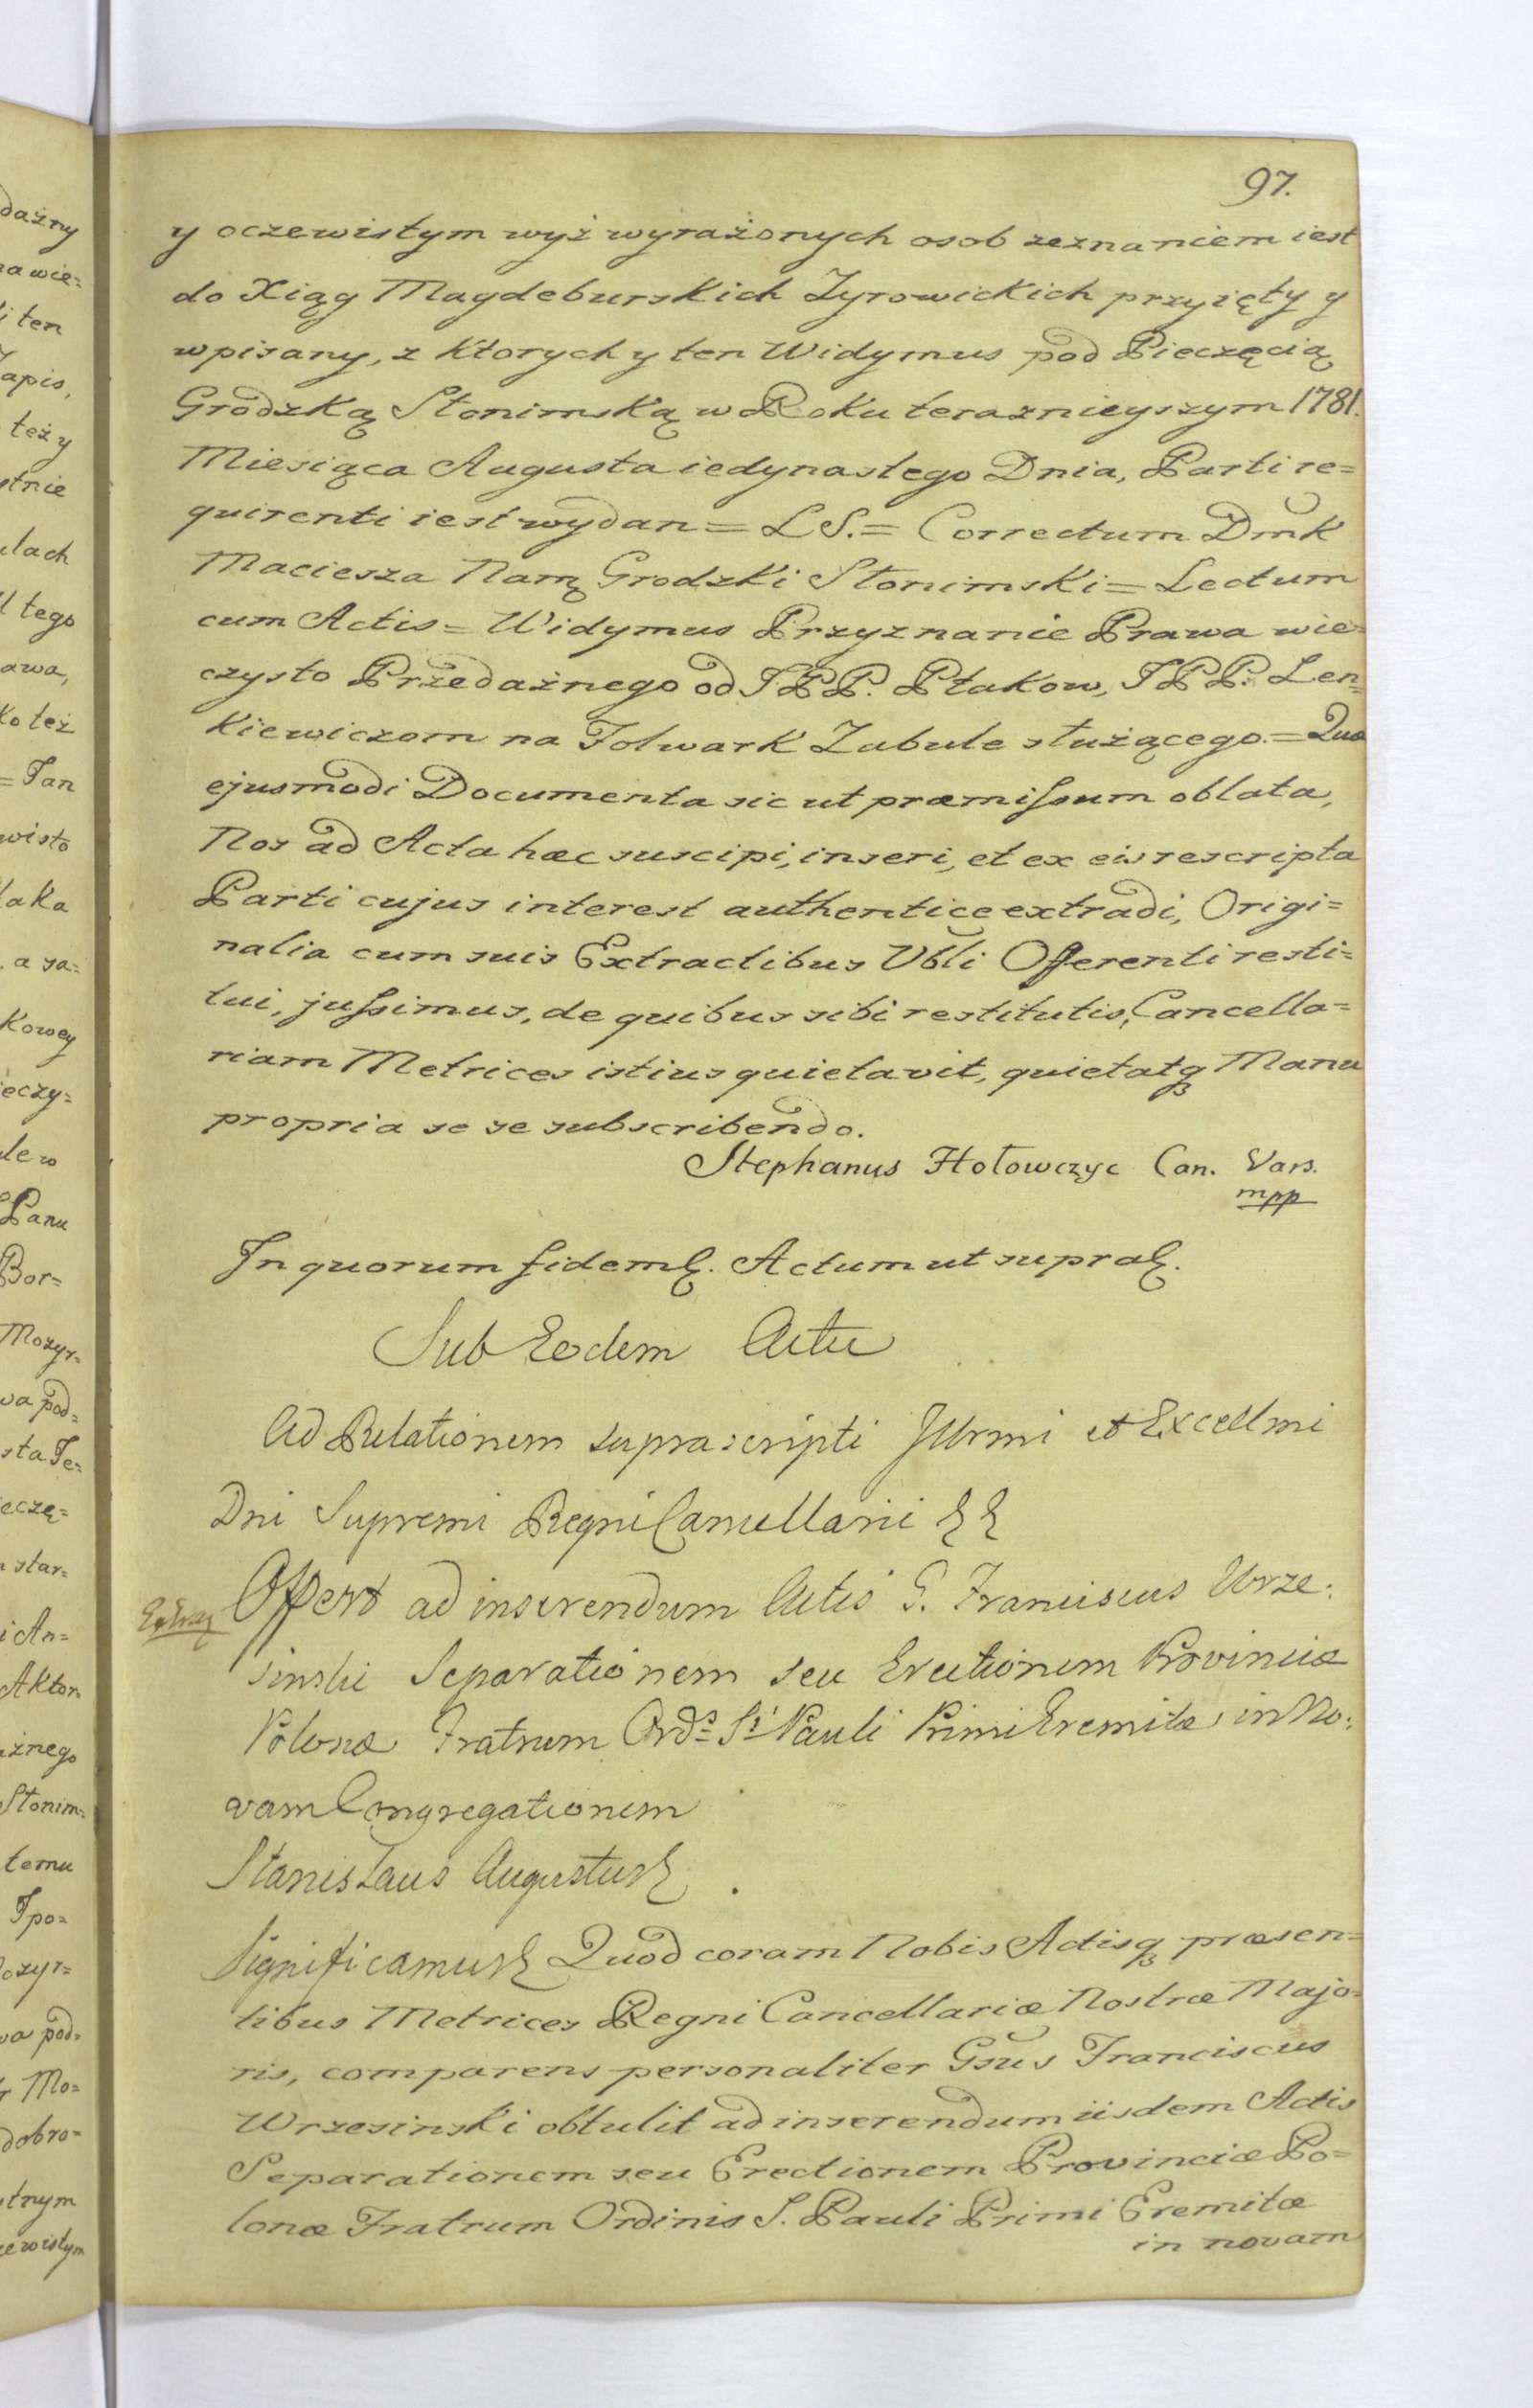 97.
y oczewistym wyż wyrażonych osob zeznaniem iest
do Xiąg Magdeburskich Zyrowickich przyięty y
wpisany, z ktorych y ten Widymus pod Pieczęcią
Grodzką Słonimską w Roku teraznieyszym 1781.
Miesiąca Augusta iedynastego Dnia, Parti re=
quirenti iest wydan = LS. = Correctum Dmk
Maciesza Namą Grodzki Słonimski = Lectum
cum Actis = Widymus Przyznanie Prawa wie=
czysto Przedażnego od JPP. Ptakow, JPP. Len=
kiewiczom na Folwark Zabule służącego. = Quæ
ejusmodi Documenta sic ut præmissum oblata,
Nos ad Acta hæc suscipi, inseri, et ex eis rescripta
Parti cujus interest authentice extradi, Origi=
nalia cum suis Extractibus Vbli Offerenti resti=
tui, jussimus, de quibus sibi restitutis, Cancella=
riam Metrices istius quietavit, quietatq Manu
propria se se subscribendo.
Stephanus Hołowczyc Can. Vars.
mpp
In quorum fidem &. Actum ut supra &.
Sub Eodem Actu
Ad Relationem suprascripti Jllrmi et Excellmi
Dni Supremi Regni Cancellarii & &
Offert ad inserendum Actis G. Franciscus Wrze:
sinski Separationem seu Erectionem Provinciæ
Polonæ Fratrum Ords Sti Pauli Primi Eremitæ in No:
vam Congregationem
Stanislaus Augustus &
Significamus & Quod coram Nobis Actisq præsen=
tibus Metrices Regni Cancellariæ Nostræ Majo=
ris, comparens personaliter Gsus Franciscus
Wrzesinski obtulit ad inserendum iisdem Actis
Separationem seu Erectionem Provinciæ Po=
lonæ Fratrum Ordinis S. Pauli Primi Eremitæ
in novam
dażny
ten
apis,
też y
lach
tego
awa,
ko też
= Jan
wisto
kowey
eczy=
Panu
Bor=
Mozyr=
wa pod=
sta Je=
eczę=
star=
i An=
Aktor
żnego
Słonim=
temu
Jpo=
ozyr=
wa pod=
Mo=
dobro=
tnym
ewistym